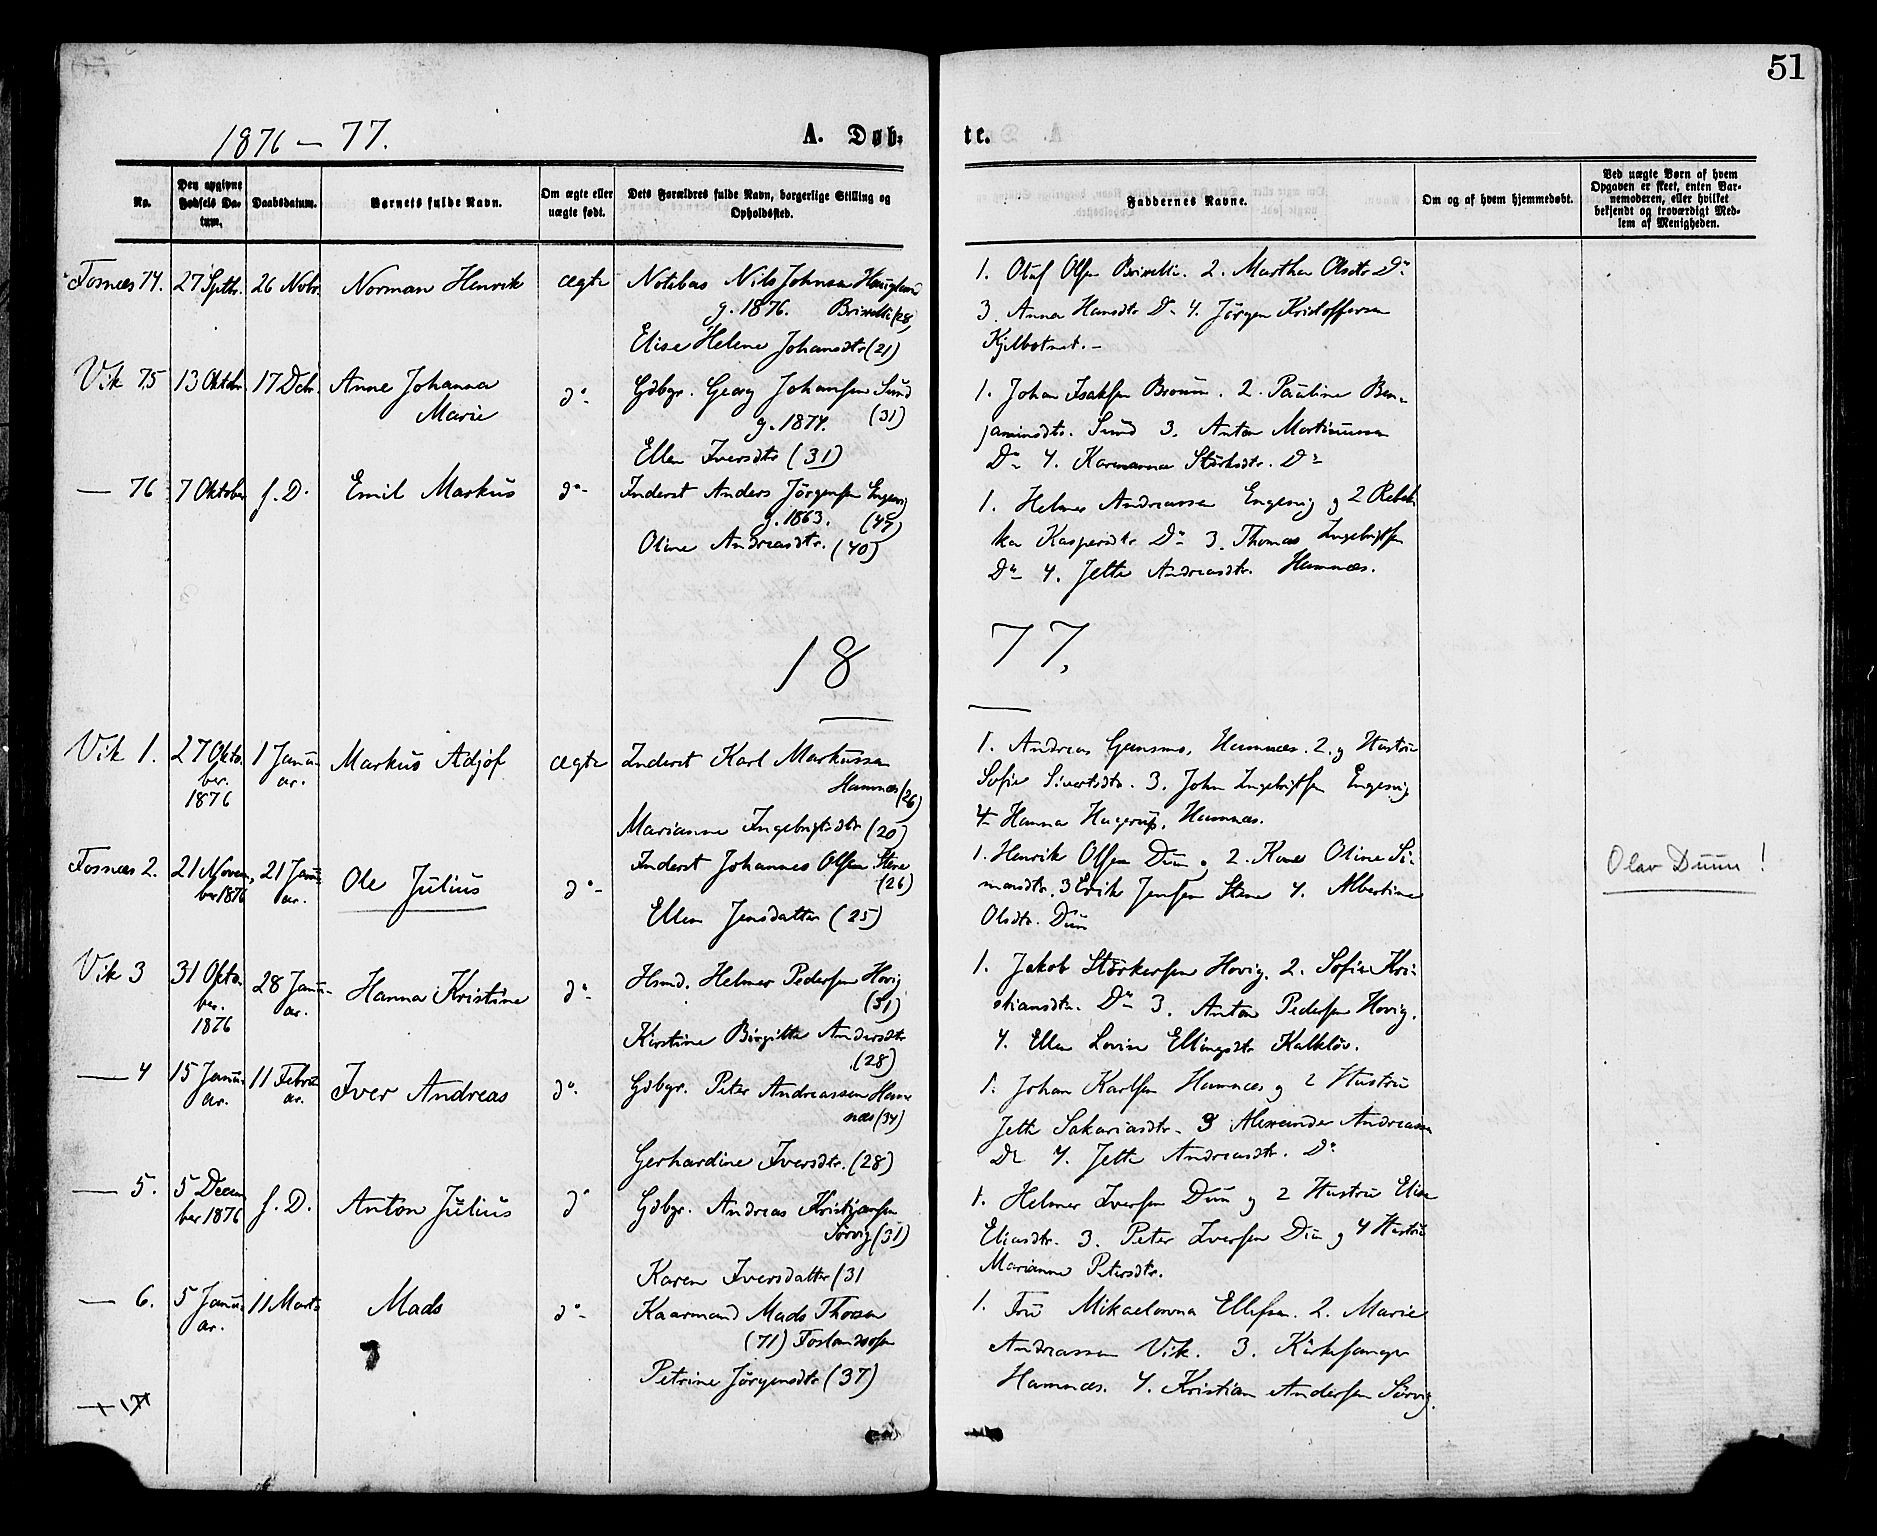 51
1876 – 77.
A. Døb-
te.
No.
Den opgivne Fødsels Da-tum.
Daabsdatum.
Barnets fulde Navn.
Om ægte eller uægte født.
Dets Forældres fulde Navn, borgerlige Stilling og Opholdssted.
Faddernes Navne.
Om og af hvem hjemmedøbt.
Ved uægte Børn af hvem
Opgaven er skeet, enten Bar-
nemoderen, eller hvilket
bekjendt og troværdigt Med-
lem af Menigheden.
Fosnæs 74. 27 Septbr. 26 Novbr. Norman Henrik ægte Notebas Nils Johnsen Haugland
g. 1876. (28)
Elise Helene Johansdtr (21)
1. Oluf Olsen 2. Marthea Olsdtr Do
3. Anna Hansdtr Do 4. Jørgen Kristoffersen
Vik 75 13 Oktobr. 17 Dcbr. Anne Johanna
Marie
do Gdbgr. Georg Johansen Sund
g. 1874. (31)
Ellen Iversdtr (31)
1. Johan Isaksen 2. Pauline Ben-
jaminsdtr. Sund 3. Anton Martinussen
Do 4. Do
— 76 7 Oktober f. D. Emil Markus do- Inderst Anders Jørgensen Engesvig
g. 1863.
Oline Andreasdtr. (40)
1. Helmer Andreassen Engesvig og 2 Rebek-
ka Kaspersdtr Do 3. Thomas Ingebrigtsen
Do 4. Jette Andreasdtr. Hamnæs.
18 77,
Vik 1. 27 Okto-
ber.
1876
1 Janu-
ar.
Markus Adjof ægte Inderst Karl Markussen
Hamnæs (26)
Marianne Ingebrigtsdtr (20)
1. Andreas Gansmo, Hamnæs. 2. og Hustru
Sofie Sivertsdtr. 3. John Ingebrigtsen Engesvig
4 Hanna Hagerup, Hamnæs.
Fosnæs 2. 21 Novem-
ber 1876
21 Janu-
ar.
Ole Julius do- Inderst Johannes Olsen Stene
(26)
Ellen Jensdatter (25)
1. Henrik Olsen Dun og 2. Kone Oline Si-
monsdtr. 3 Erik Jensen Stene 4. Albertine
Olsdtr. Dun
Olav Duun!
Vik 3 31 Okto-
ber.
1876
28 Janu-
ar.
Hanna Kristine do- Hsmd. Helmer Pedersen Hovig
(31)
Kirstine Birgitte Andersdtr
(28)
1. Jakob Størkersen Hovig. 2. Sofie Kri-
stiansdtr. Do 3. Anton Pedersen Hovig.
4. Ellen Lovise Ellingsdtr Kalkløv.
— 4 15 Janu-
ar.
11 Febru-
ar.
Iver Andreas do. Gdbgr. Peter Andreassen Ham-
næs (34)
Gerhardine Iversdtr. (28)
1. Johan Karlsen Hamnæs og 2 Hustru
Jette Sakariasdtr. 3 Alexander Andreassen
Do 4. Jette Andreasdtr. Do
— 5. 5 Decem-
ber 1876
f. D. Anton Julius do Gdbgr. Andreas Kristiansen
Sørvig (31)
Karen Iversdatter (31
1. Helmer Iversen Dun og 2 Hustru Elise
Eliasdtr. 3. Peter Iversen Dun og 4 Hustru
Marianne Petersdtr.
— 6. 5 Janu-
ar.
11 Marts Mads do- Kaarmand Mads Thorsen
(71) Foslandsosen
Petrine Jørgensdtr (37)
1. Fru Mikaelovna Ellefsen. 2. Marie
Andreassen Vik. 3. Kirkesanger
Hamnæs. 4. Kristian Andersen Sørvig.